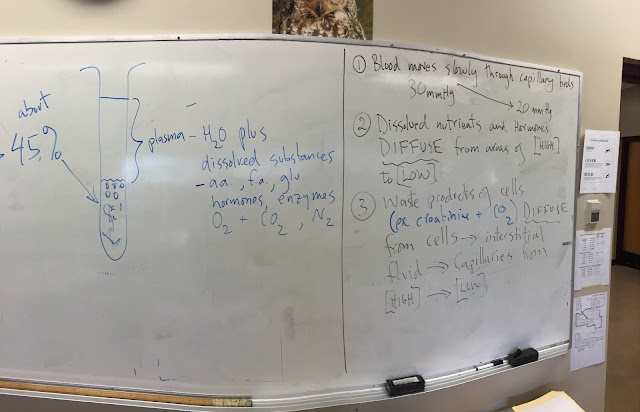 about
45%
plasma - H₂O plus
dissolved substances
- aa., f.a., glu
hormones, enzymes
O₂ + CO₂, N₂
① Blood moves slowly through capillary beds
30mmHg → 20 mmHg
② Dissolved nutrients and Hormones
DIFFUSE from areas of [HIGH]
to [LOW]
③ Waste products of cells
(ex creatinine + CO₂) DIFFUSE
from cells → interstitial
fluid → Capillaries from
[HIGH] → [LOW]